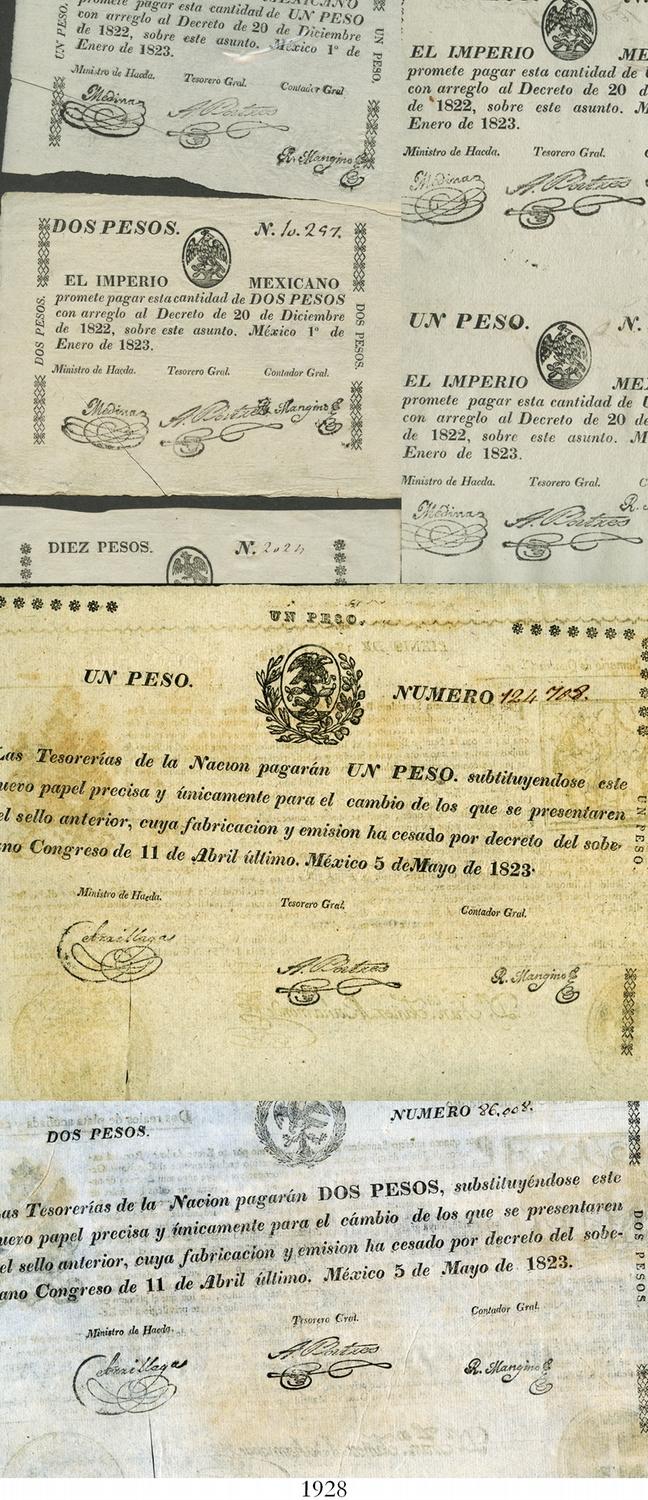 MEXICANO
promete pagar esta cantidad de UN PESO
con arreglo al Decreto de 20 de Diciembre
de 1822, sobre este asunto. México 1º de
Enero de 1823.
UN PESO.
UN PESO.
Ministro de Hacda. Tesorero Gral. Contador Gral
Medina
A. Batres
R. Mangino
EL IMPERIO ME
promete pagar esta cantidad de U
con arreglo al Decreto de 20 d
de 1822, sobre este asunto. M
Enero de 1823.
Ministro de Hacda. Tesorero Gral. C
Medina A. Batres
DOS PESOS. N. 10.297.
EL IMPERIO MEXICANO
promete pagar esta cantidad de DOS PESOS
con arreglo al Decreto de 20 de Diciembre
de 1822, sobre este asunto. México 1º de
Enero de 1823.
DOS PESOS.
DOS PESOS.
Ministro de Hacda. Tesorero Gral. Contador Gral.
Medina A. Batres R. Mangino
UN PESO. N.
EL IMPERIO MEX
promete pagar esta cantidad de U
con arreglo al Decreto de 20 de
de 1822, sobre este asunto. M
Enero de 1823.
Ministro de Hacda. Tesorero Gral. C
R.
Medina A. Batres
DIEZ PESOS. N. 2024
UN PESO.
UN PESO. NUMERO 124708.
Las Tesorerías de la Nacion pagarán UN PESO. subtituyendose este
uevo papel precisa y únicamente para el cambio de los que se presentaren
el sello anterior, cuya fabricacion y emision ha cesado por decreto del sobe-
ano Congreso de 11 de Abril último. México 5 de Mayo de 1823.
UN PESO.
Ministro de Haeda. Tesorero Gral. Contador Gral.
Arrillaga A. Batres R. Mangino
DOS PESOS. NUMERO 86,008.
as Tesorerías de la Nacion pagarán DOS PESOS, substituyéndose este
uevo papel precisa y únicamente para el cámbio de los que se presentaren
el sello anterior, cuya fabricacion y emision ha cesado por decreto del sobe-
ano Congreso de 11 de Abril último. México 5 de Mayo de 1823.
DOS PESOS
Ministro de Haeda. Tesorero Gral. Contador Gral.
Arrillaga A. Batres R. Mangino
1928